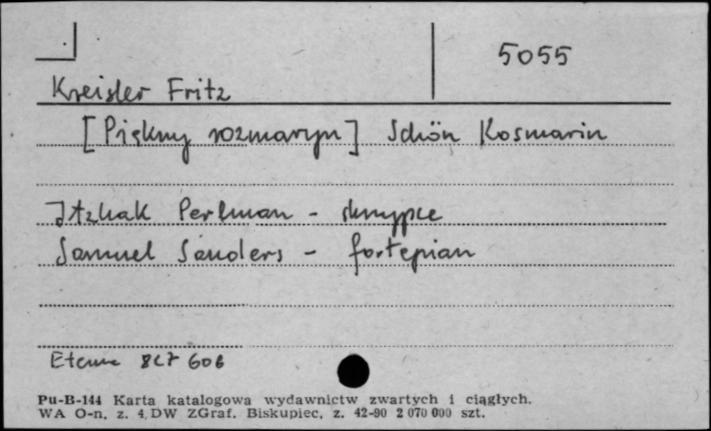 5055
Kreisler Fritz
[Piękny rozmaryn] Schön Rosmarin
Itzhak Perlman - skrzypce
Samuel Sanders - fortepian
Eterna 827 606
Pu-B-144 Karta katalogowa wydawnictw zwartych i ciągłych.
WA O-n. z. 4. DW ZGraf. Biskupiec, z. 42-90 2 070 000 szt.